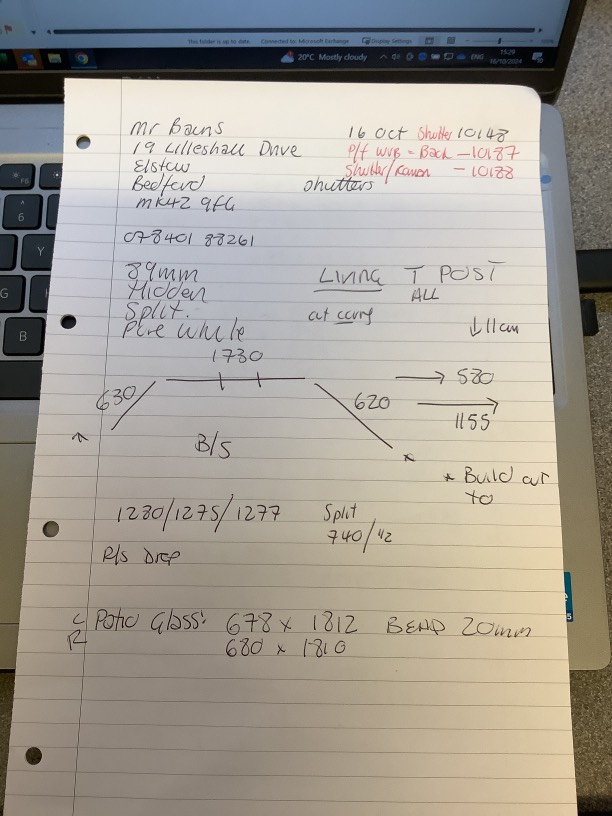 This folder is up to date. Connected to: Microsoft Exchange Display Settings
20°C Mostly cloudy ENG 15:29
16/10/2024
Mr Bains 16 Oct Shutter 10148
19 Lilleshall Drive P/f WVB - Back - 10187
Elstow Shutter/Raven - 10188
Bedford Shutters
MK42 9FG
078401 88261
89mm Living T POST
Hidden ALL
Split. at curve ↓11cm
Pure White
1730
630 620 → 580
→ 1155
B/S
* Build out
to
1280/1275/1277 Split
740/42
R/S Drop
L Patio Glass: 678 x 1812 BEAD 20mm
R 680 x 1810
F6
6
Y
G
B